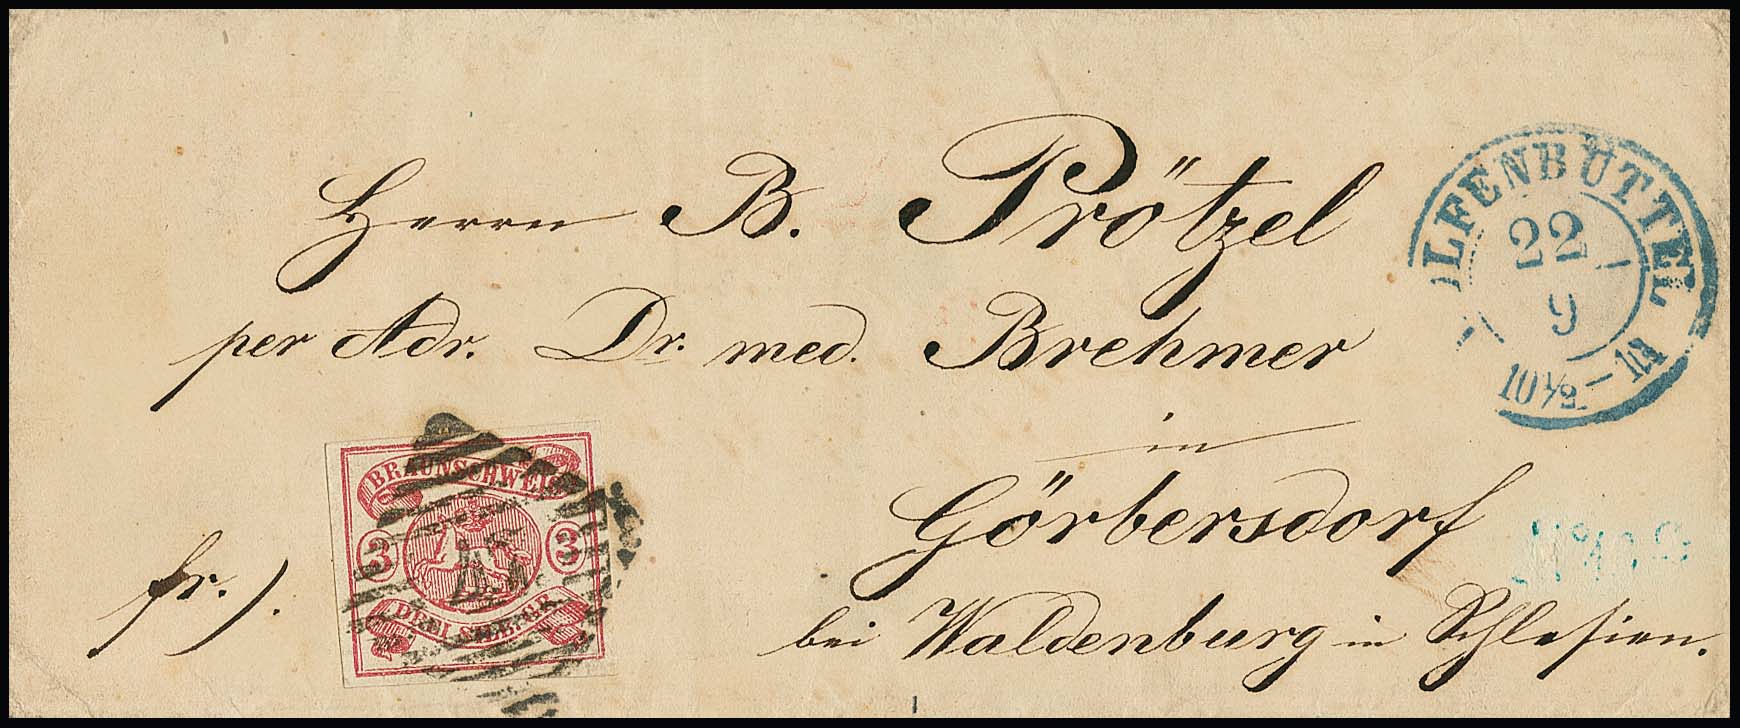 Herrn B. Prötzel
per Adr. Dr. med. Brehmer
in
Görbersdorf
bei Waldenburg in Schlesien.
fr.).
BRAUNSCHWEIG
3 3
DREI SILB.GR.
LFENBÜTTEL
22
9
10½–11